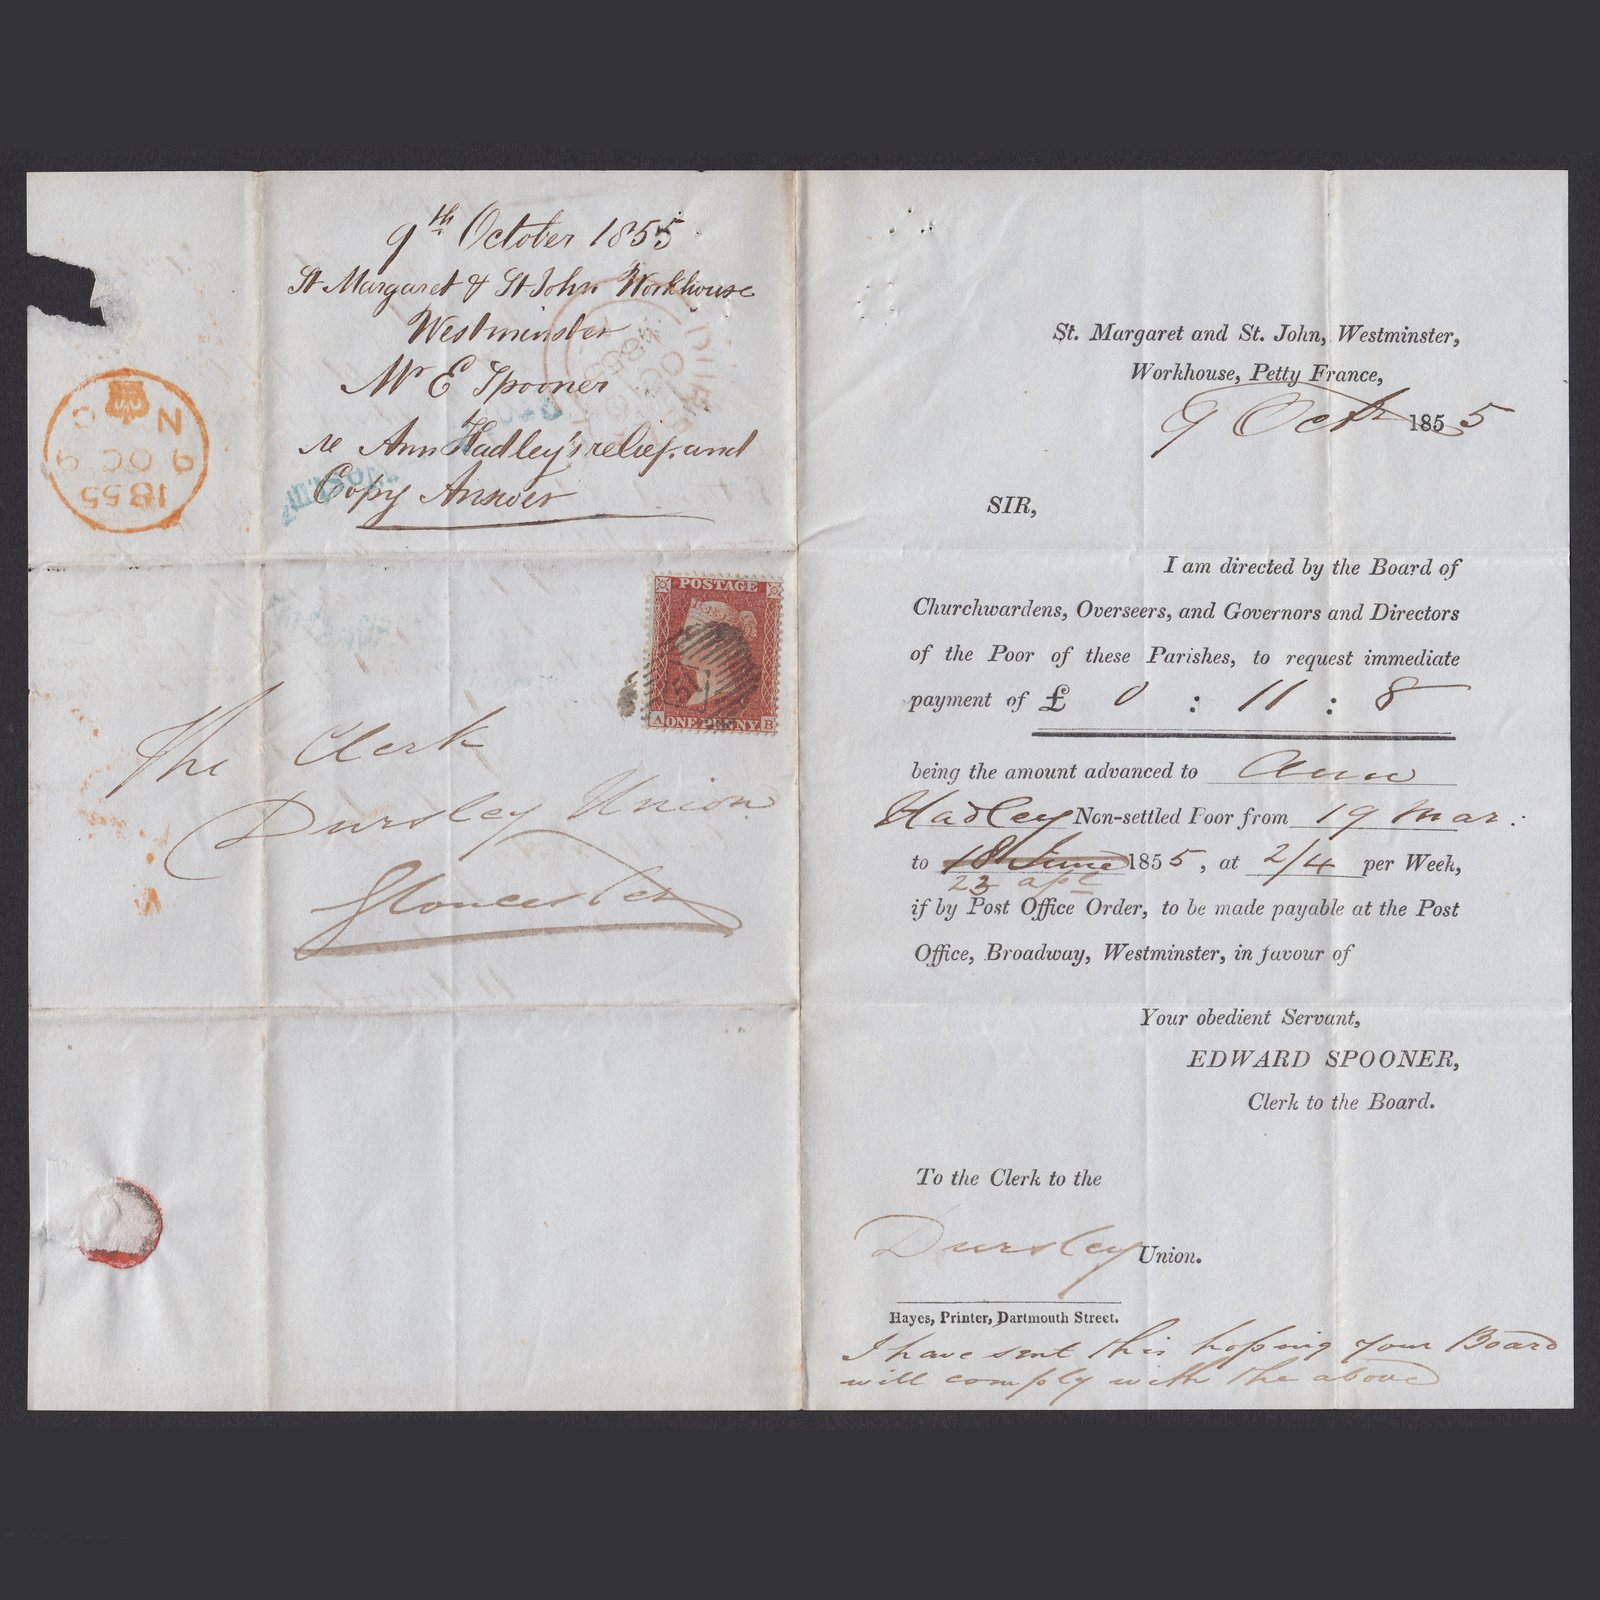 9th October 1855
St Margaret & St John Workhouse
Westminster
Mr E Spooner
re Ann Hadley's relief. and
Copy Answer
C N
9 OC 9
1855
POSTAGE
A ONE PENNY B
The Clerk
Dursley Union
Gloucester
St. Margaret and St. John, Westminster,
Workhouse, Petty France,
9 Octr 1855
SIR,
I am directed by the Board of
Churchwardens, Overseers, and Governors and Directors
of the Poor of these Parishes, to request immediate
payment of £ 0 : 11 : 8
being the amount advanced to Ann
Hadley Non-settled Poor from 19 Mar:
to 18 June 1855, at 2/4 per Week,
23 apl
if by Post Office Order, to be made payable at the Post
Office, Broadway, Westminster, in favour of
Your obedient Servant,
EDWARD SPOONER,
Clerk to the Board.
To the Clerk to the
Dursley Union.
Hayes, Printer, Dartmouth Street.
I have sent this hopping your Board
will comply with the above